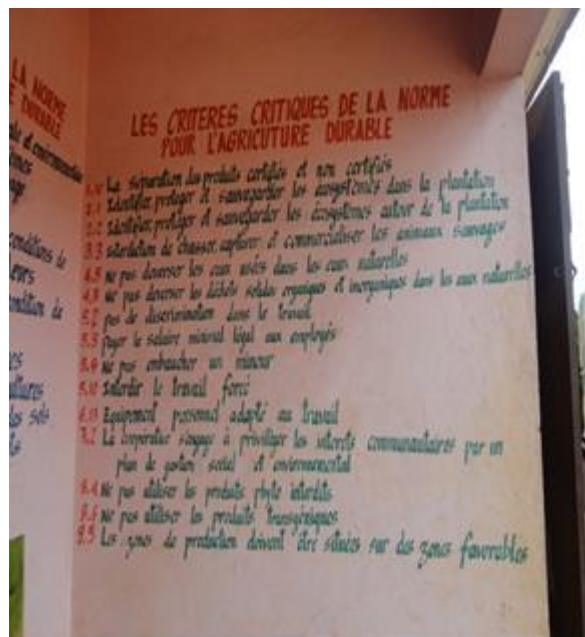 LA NORME
E DURABLE
LES CRITERES CRITIQUES DE LA NORME
POUR L'AGRICUTURE DURABLE
La séparation des produits certifiés et non certifiés
2.1 Identifier, protéger et sauvegarder les écosystèmes dans la plantation
2.2 Identifier, protéger et sauvegarder les écosystèmes autour de la plantation
3.3 interdiction de chasser, capturer et commercialiser les animaux sauvages
4.5 Ne pas déverser les eaux usées dans les eaux naturelles
Ne pas déverser les déchets solides organiques et inorganiques dans les eaux naturelles
5.2 pas de discrimination dans le travail
5.5 Payer le salaire minimal légal aux employés
5.8 Ne pas embaucher un mineur
5.10 Interdir le travail forcé
6.13 Equipement personnel adapté au travail
7.2 La coopérative s'engage à privilégier les intérêts communautaires par un
plan de gestion social et environnemental
8.4 Ne pas utiliser les produits phyto interdits
8.6 Ne pas utiliser les produits transgéniques
9.5 Les zones de production doivent être situées sur des zones favorables
conditions de